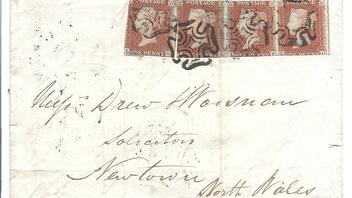 POSTAGE POSTAGE POSTAGE POSTAGE
ONE PENNY. ONE PENNY. ONE PENNY. ONE PENNY.
Messrs Drew & Woosnam
Solicitors
Newtown
North Wales